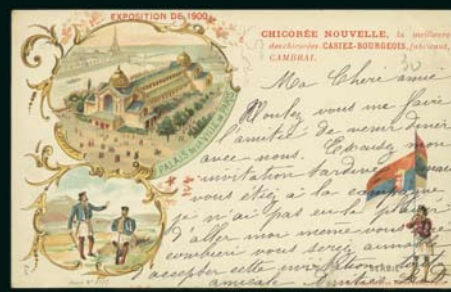 EXPOSITION DE 1900
CHICORÉE NOUVELLE, la meilleure
des chicorées CASIEZ-BOURGEOIS, fabricant,
CAMBRAI.
PALAIS DE LA VILLE DE PARIS
Ma Chère amie
Voulez vous me faire
l'amitié de venir diner
avec nous. Excusez mon
invitation tardive mais
vous étiez à la campagne
je n'ai pas eu le plaisir
d'aller moi même vous
combien vous seriez
accepter cette invitation
amicale
SERBIE